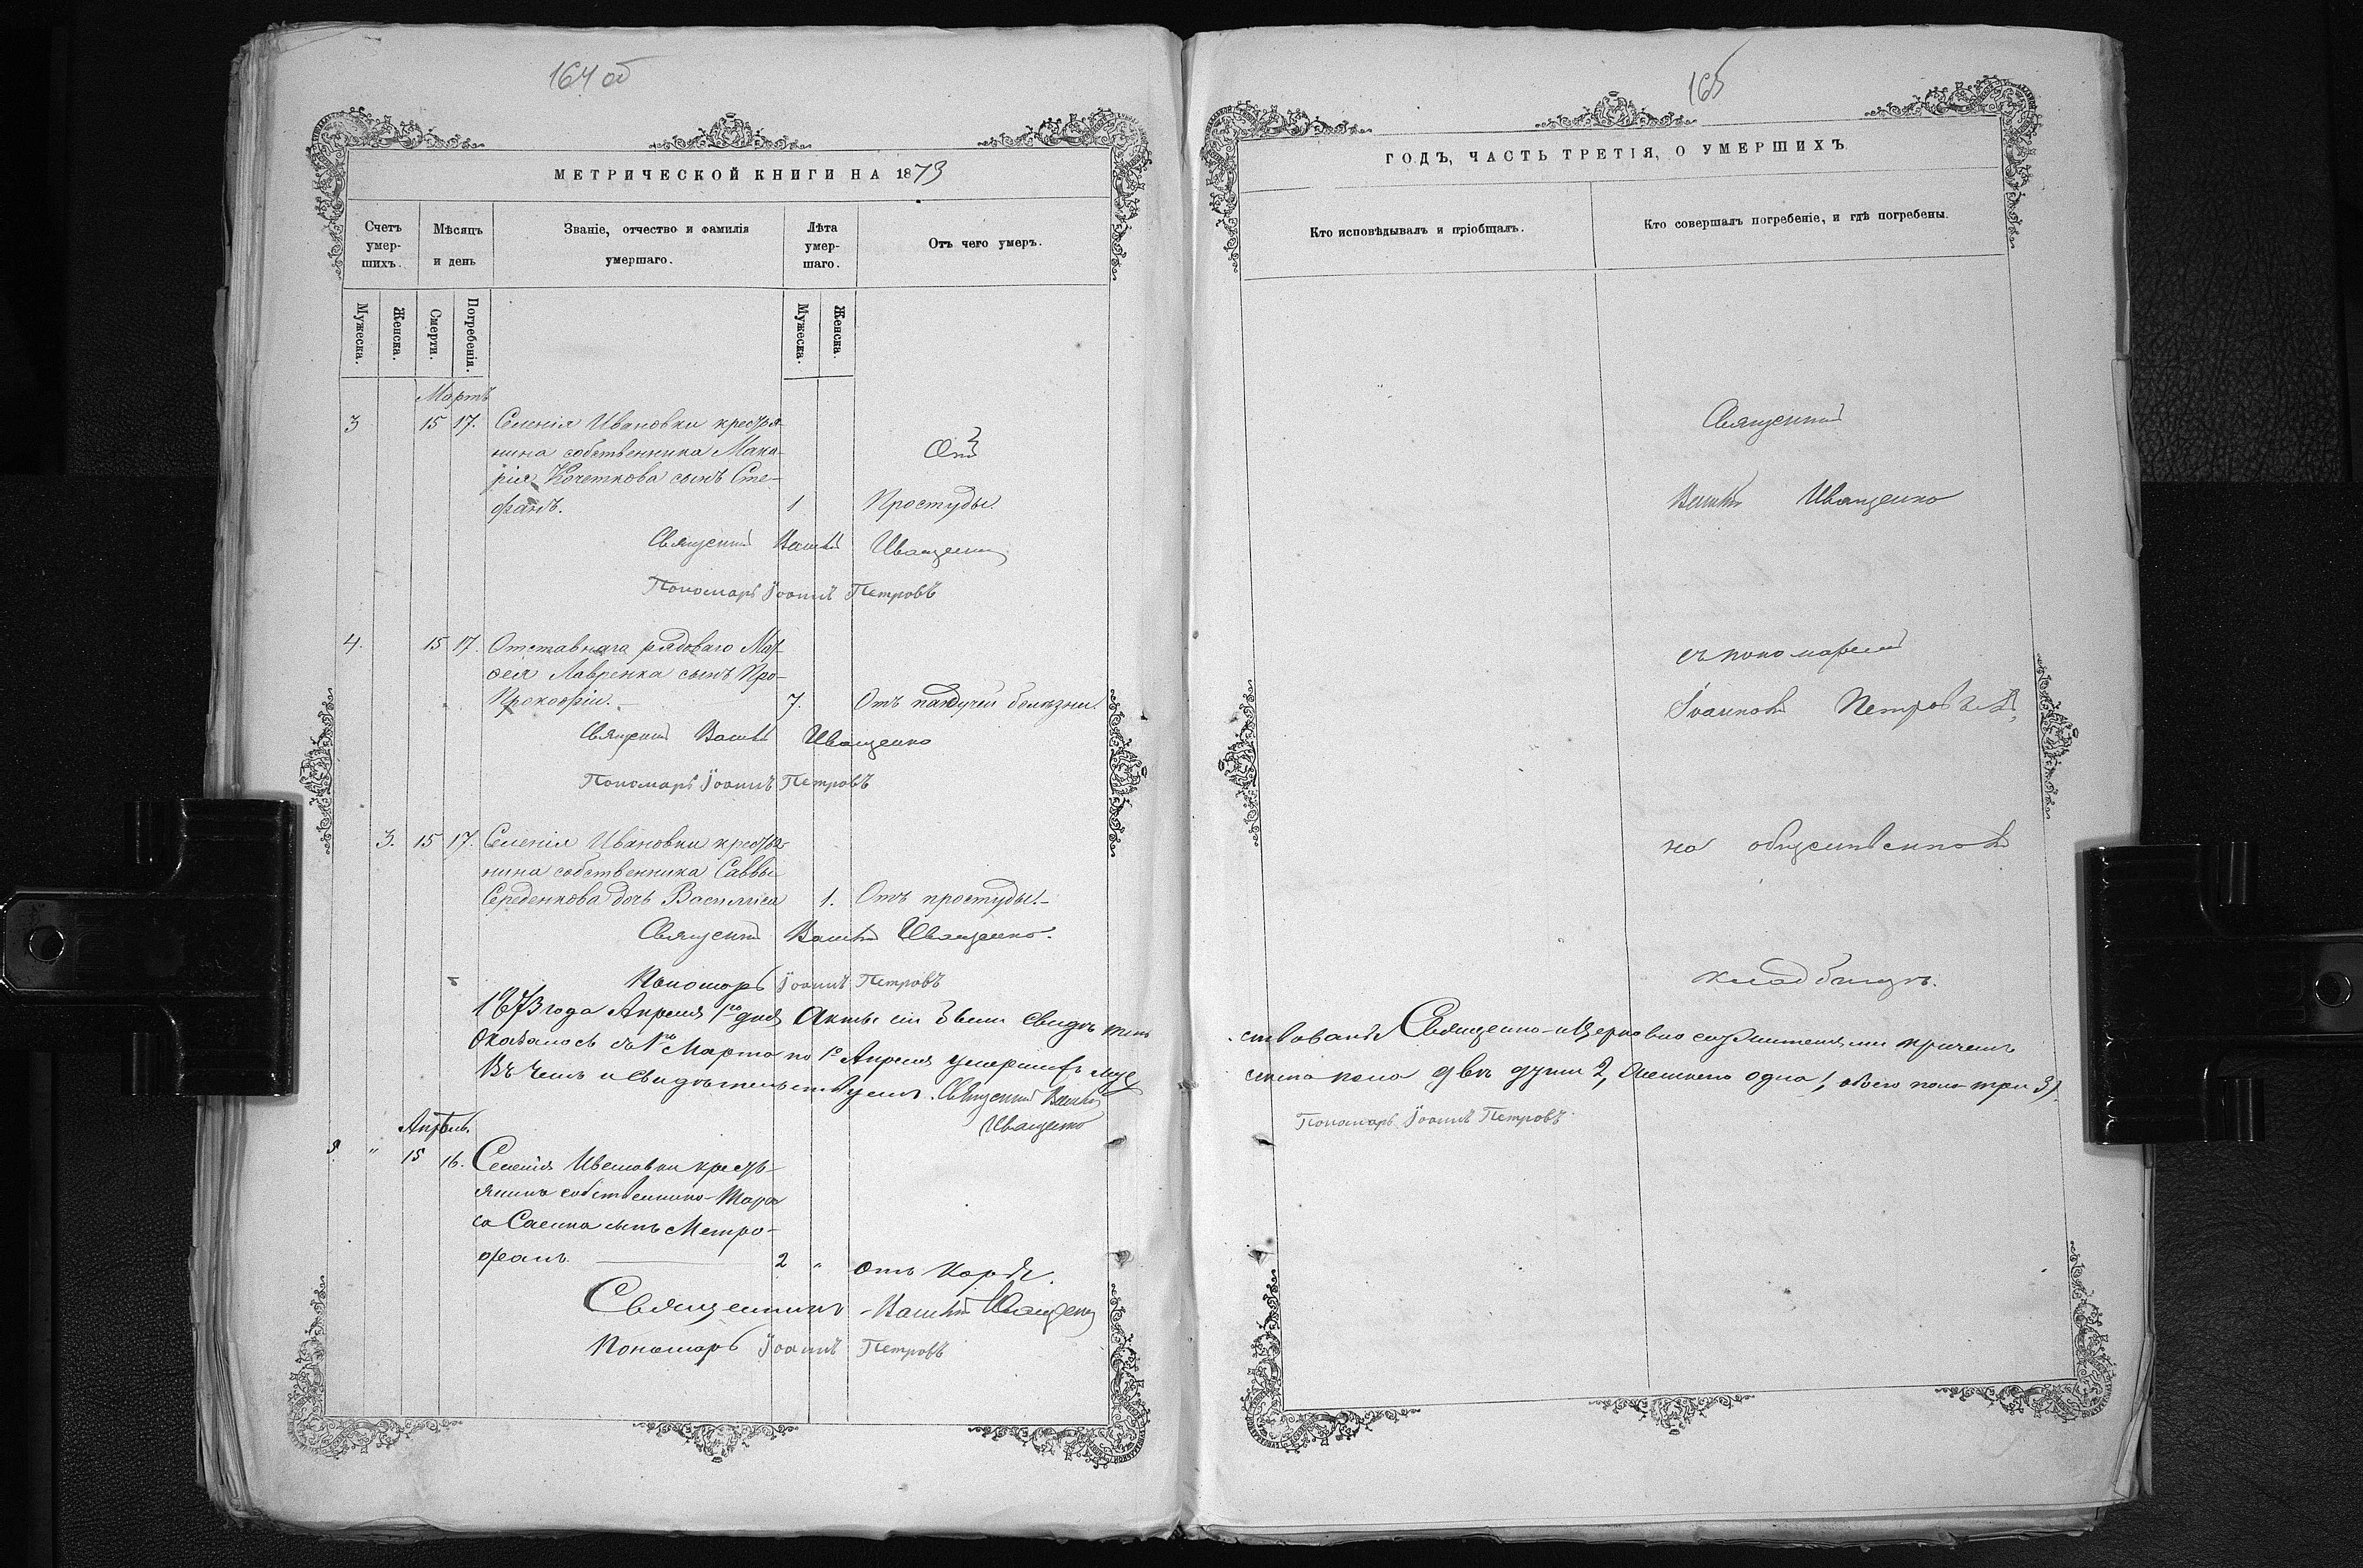 164 об
МЕТРИЧЕСКОЙ КНИГИ НА 1873
Счетъ умер-шихъ.
Мѣсяцъ и день
Званіе, отчество и фамилія умершаго.
Лѣта умер-шаго.
Отъ чего умеръ.
Мужеска.
Женска.
Смерти.
Погребенія.
Мужеска.
Женска.
Мартъ
3 15 17. Селенія Ивановки крестья-
нина собственника Мака-
рія Кочеткова сынъ Сте-
фанъ.
1
Отъ
Простуды.
Священникъ Иващенко
Пономарь Іоаннъ Петровъ
4. 15 17. Отставнаго рядоваго
Лавренка сынъ Про-
Прокофій. 7. Отъ падучей болѣзни.
Священникъ Иващенко
Пономарь Іоаннъ Петровъ
3. 15 17. Селенія Ивановки крестья-
нина собственника Саввы
Середенкова дочь Василиса 1. Отъ простуды.
Священникъ Иващенко.
Пономарь Іоаннъ Петровъ
1873 года Апреля 1го дня Акты сіи были свидѣтель
Оказалось съ 1го Марта по 1е Апреля умершихъ муж
Въ чемъ и свидѣтельствуемъ. Священникъ
Иващенко
Апрѣль.
5. " 15 16. Селенія Ивановки кресть-
янина собственника Тара
са Саенка сынъ Метро-
фанъ. 2 " Отъ Кори.
Священникъ Иващенко
Пономарь Іоаннъ Петровъ
165
ГОДЪ, ЧАСТЬ ТРЕТІЯ, О УМЕРШИХЪ
Кто исповѣдывалъ и пріобщалъ.
Кто совершалъ погребеніе, и гдѣ погребены.
Священникъ
Иващенко
съ пономаремъ
Іоанномъ Петровымъ,
на общественномъ
кладбищѣ.
ствованы Священно-и Церковно служителями причемъ
скаго пола двѣ души 2, женскаго одна 1, обоего пола три 3)
Пономарь Іоаннъ Петровъ